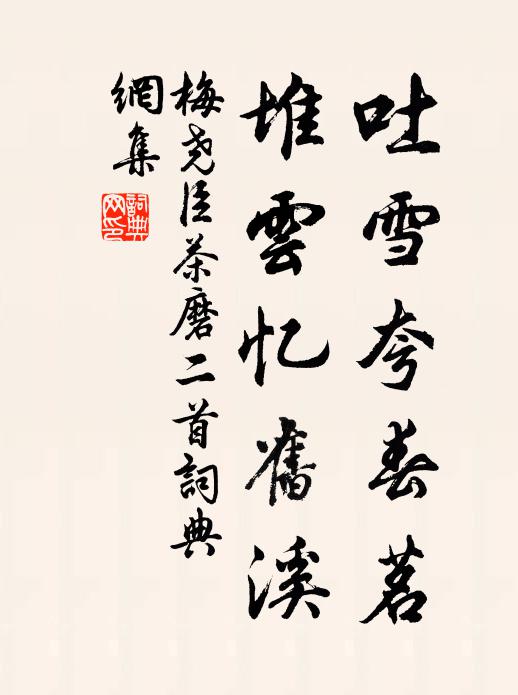 吐雪夸春茗
堆雲忆舊溪
梅尧臣茶磨二首詞典
網集
詞典
网印